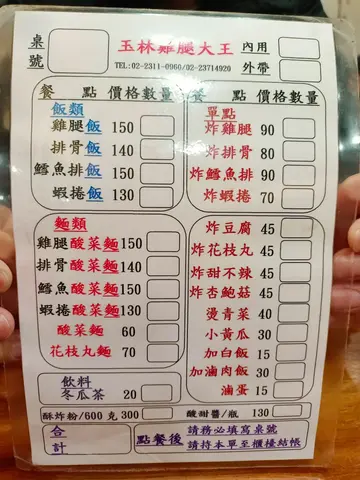 桌號
玉林雞腿大王
TEL:02-2311-0960/02-23714920
內用
外帶
餐 點 價格 數量
飯類
雞腿飯 150
排骨飯 140
鱈魚排飯 150
蝦捲飯 130
麵類
雞腿酸菜麵 150
排骨酸菜麵 140
鱈魚酸菜麵 150
蝦捲酸菜麵 130
酸菜麵 60
花枝丸麵 70
飲料
冬瓜茶 20
酥炸粉/600克 300
餐 點 價格 數量
單點
炸雞腿 90
炸排骨 80
炸鱈魚排 90
炸蝦捲 70
炸豆腐 45
炸花枝丸 45
炸甜不辣 45
炸杏鮑菇 45
燙青菜 40
小黃瓜 30
加白飯 15
加滷肉飯 30
滷蛋 15
酸甜醬/瓶 130
合計
點餐後
請務必填寫桌號
請持本單至櫃檯結帳